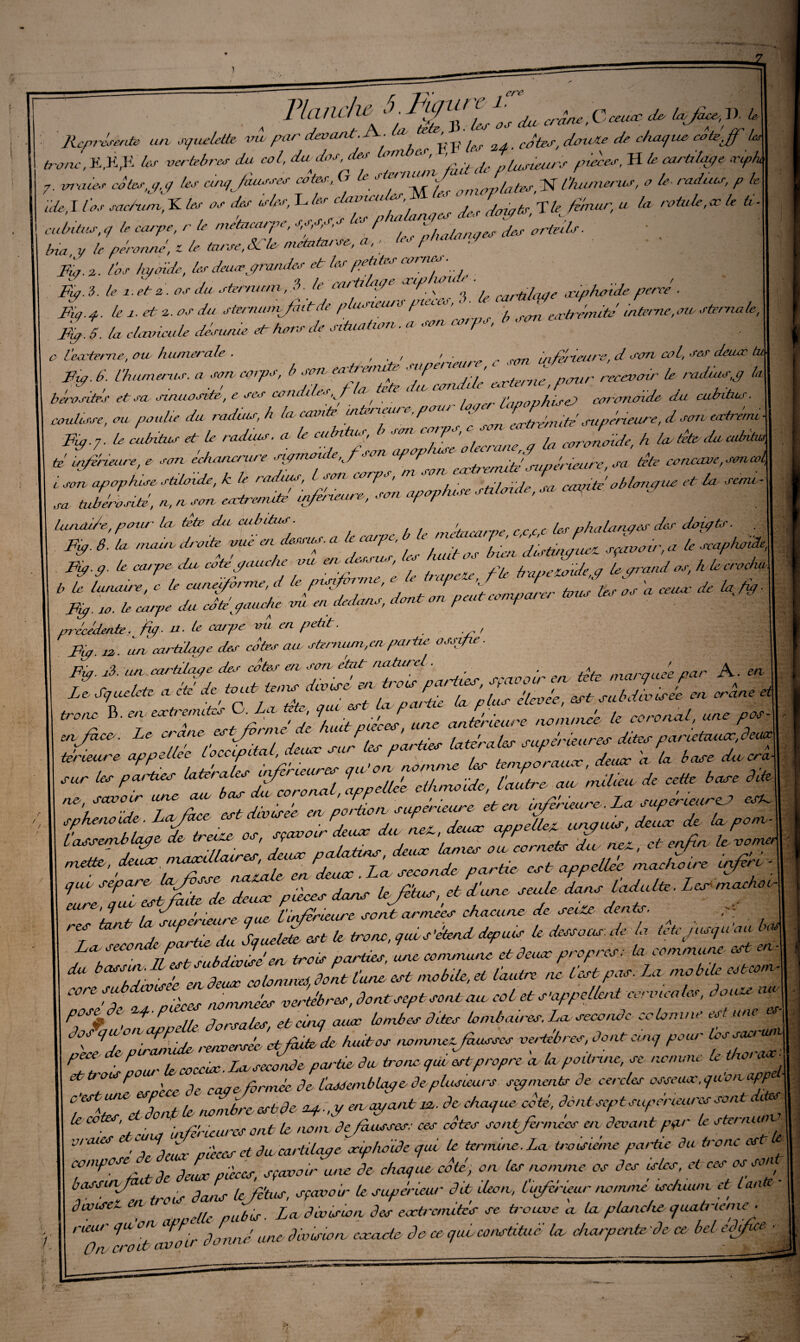 7.
Planche 5. Figure 1.ere
Représente un squelette vû par devant. A. la tête, B. les os du crâne, C ceux de la face, D. le
tronc, E,E,E les vertebres du col, du dos, des lombes, F,F les 24. côtes, douze de chaque côté, ff les
7. vraies côtes, g,g les cinq fausses côtes, G le sternum fait de plusieurs pièces, H le cartilage xipho
ide, I l'os sacrum, K les os des isles, L les clavicules, M les omoplates, N l'humerus, o le radius, p le
cubitus, q le carpe, r le métacarpe, s,s,s,s,s les phalanges des doigts, T le fémur, u la rotule, x le ti-
bia, y le péronné, z le tarse, & le métatarse, a, les phalanges des orteils.
Fig. 2. l'os hyoïde, les deux grandes et les petites cornes.
Fig. 3. le 1. et 2. os du sternum, 3. le cartilage xiphoïde.
Fig. 4. le 1. et 2. os du sternum fait de plusieurs pièces, 3. le cartilage xiphoïde percé.
Fig. 5. la clavicule désunie et hors de situation. a son corps, b son extrémité interne, ou sternale,
c l'externe, ou humerale.
Fig. 6. l'humerus. a son corps, b son extrémité supérieure, c son inférieure, d son col, ses deux tu
bérosités et sa sinuosité, e ses condiles, f la tête du condile externe, pour recevoir le radius, g la
coulisse, ou poulie du radius, h la cavité intérieure, pour loger l'apophise coronoïde du cubitus.
Fig. 7. le cubitus et le radius. a le cubitus, b son corps, c son extrémité supérieure, d son extrémi-
té inférieure, e son échancrure sigmoïde, f son apophise olecrane, g la coronoïde, h la tête du cubitus
i son apophise stiloïde, k le radius, l son corps, m son extremité supérieure, sa tête concave, son col
sa tubérosité, n, n son extremité inférieure, son apophise stiloïde, sa cavité oblongue et la semi-
lunaire, pour la tête du cubitus.
Fig. 8. la main droite vuë en dessus. a le carpe, b le métacarpe, c,c,c,c les phalanges des doigts.
Fig. 9. le carpe du côté gauche vû en dessus, les huit os bien distinguez sçavoir, a le scaphoïde,
b le lunaire, c le cuneiforme, d le pisiforme, e le trapeze, f le trapezoïde, g le grand os, h le crochu
Fig. 10. le carpe du côté gauche vû en dedans, dont on peut comparer tous les os à ceux de la fig.
précédente. fig. 11. le carpe vû en petit.
Fig. 12. un cartilage des côtes au sternum, en partie ossifié.
Fig. 13. un cartilage des côtes en son état naturel.
Le Squelete a été de tout tems divisé en trois parties, sçavoir en tête marquée par A. en
tronc B. en extremités C. La tête, qui est la partie la plus élevée, est subdivisée en crâne et
en face. Le crâne est formé de huit pièces, une antérieure nommée le coronal, une pos-
térieure appellée l'occipital, deux sur les parties latérales supérieures dites parietaux, deux
sur les parties latérales inférieures qu'on nomme les temporaux, deux à la base du crâ-
ne, sçavoir une au bas du coronal, appellée ethmoïde, l'autre au milieu de cette base dite
sphenoïde. La face est divisée en portion supérieure et en inférieure. La superieure est
l'assemblage de treize os, sçavoir deux du nez, deux appellez unguis, deux de la pom-
mette, deux maxillaires, deux palatins, deux lames ou cornets du nez, et enfin le vomer
qui sépare la fosse nazale en deux. La seconde partie est appellée machoire inféri-
eure, qui est faite de deux pièces dans le fétus, et d'une seule dans l'adulte. Les machoi-
res tant la supérieure que l'inférieure sont armées chacune de seize dents.
La seconde partie du Squelete est le tronc, qui s'étend depuis le dessous de la tête jusqu'au bas
du bassin. Il est subdivisé en trois parties, une commune et deux propres: la commune est en-
core subdivisée en deux colomnes, dont l'une est mobile, et l'autre ne l'est pas. La mobile est com-
posé de 24. pièces nommées vertébres, dont sept sont au col et s'appellent cervicales, douze au
dos qu'on appelle dorsales, et cinq aux lombes dites lombaires. La seconde colomne est une es-
pece de piramide renversée et faite de huit os nommez fausses vertèbres, dont cinq pour l'os sacrum
et trois pour le coccix. La seconde partie du tronc qui est propre à la poitrine, se nomme le thorax:
c'est une espèce de cage formée de l'assemblage de plusieurs segments de cercles osseux, qu'on appel-
le côtes, et dont le nombre est de 24., y en ayant 12. de chaque côté, dont sept supérieures sont dites
vraies et cinq inférieures ont le nom de fausses: ces côtes sont fermées en devant par le sternum
composé de deux pièces et du cartilage xiphoïde qui le termine. La troisième partie du tronc est le
bassin, fait de deux pièces, sçavoir une de chaque côté, on les nomme os des isles, et ces os sont
divisez en trois dans le fétus, sçavoir le supérieur dit ileon, l'inférieur nommé ischium et l'anté-
rieur qu'on appelle pubis. La division des extremités se trouve à la planche quatrième.
On croit avoir donné une division exacte de ce qui constituë la charpente de ce bel édifice.